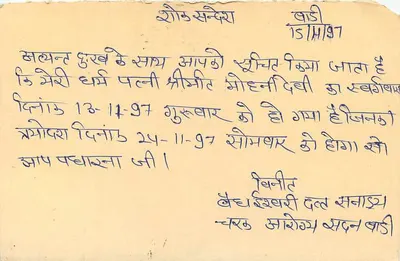 शोक सन्देश
बाडी
15/11/97
अत्यन्त दुःख के साथ आपको सूचित किया जाता है
कि मेरी धर्म पत्नी श्रीमति मोहनीदेवी का स्वर्गवास
दिनांक 13-11-97 गुरूवार को हो गया है। जिनका
त्रयोदश दिनांक 24-11-97 सोमवार को होगा सो
आप पधारना जी।
विनीत
वैद्य ईश्वरी दत्त सनाढ्य
चरक आरोग्य सदन बाडी